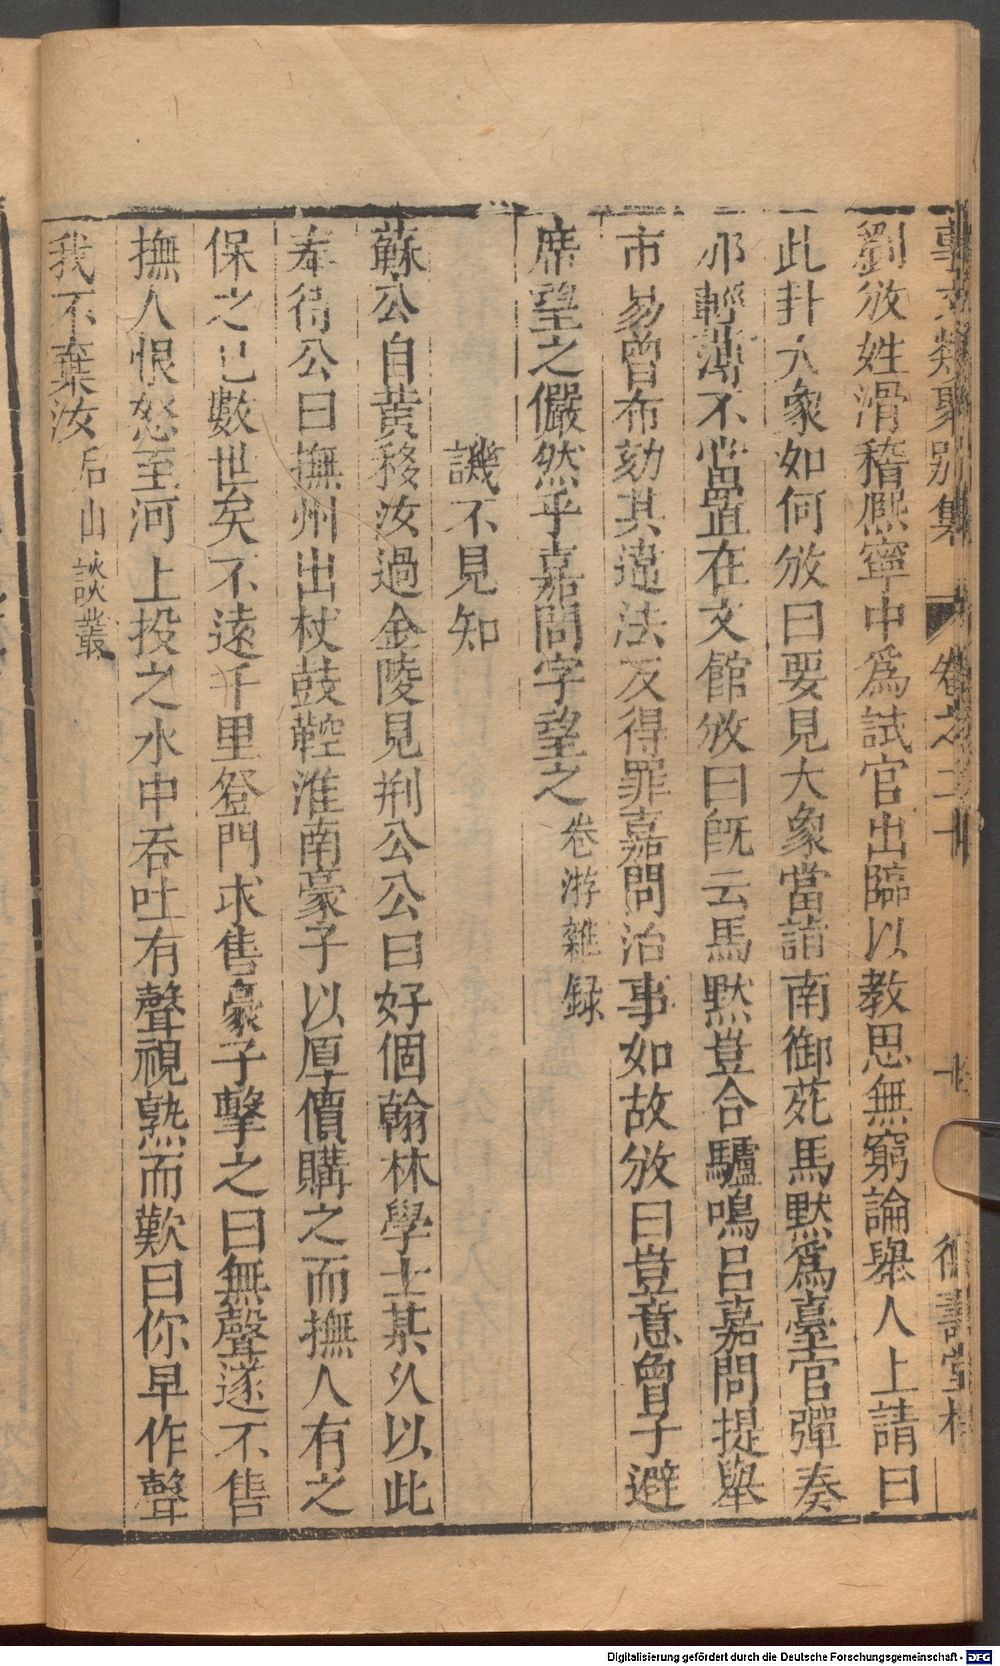 事文類聚別集 卷之二十 十 德壽堂梓
劉攽姓滑稽熙寧中爲試官出臨以教思無窮論舉人上請曰
此卦大象如何攽曰要見大象當詣南御苑馬默爲臺官彈奏
邠輕薄不當置在文館攽曰旣云馬默豈合驢鳴呂嘉問提舉
市易曾布劾其違法反得罪嘉問治事如故攽曰豈意曾子避
席望之儼然乎嘉問字望之 卷游雜録
譏不見知
蘇公自黄移汝過金陵見荆公公曰好個翰林學士某久以此
奉待公曰撫州出杖鼓鞚淮南豪子以厚價購之而撫人有之
保之已數世矣不遠千里登門求售豪子擊之曰無聲遂不售
撫人恨怒至河上投之水中吞吐有聲視熟而歎曰你早作聲
我不棄汝 后山談叢
Digitalisierung gefördert durch die Deutsche Forschungsgemeinschaft - DFG